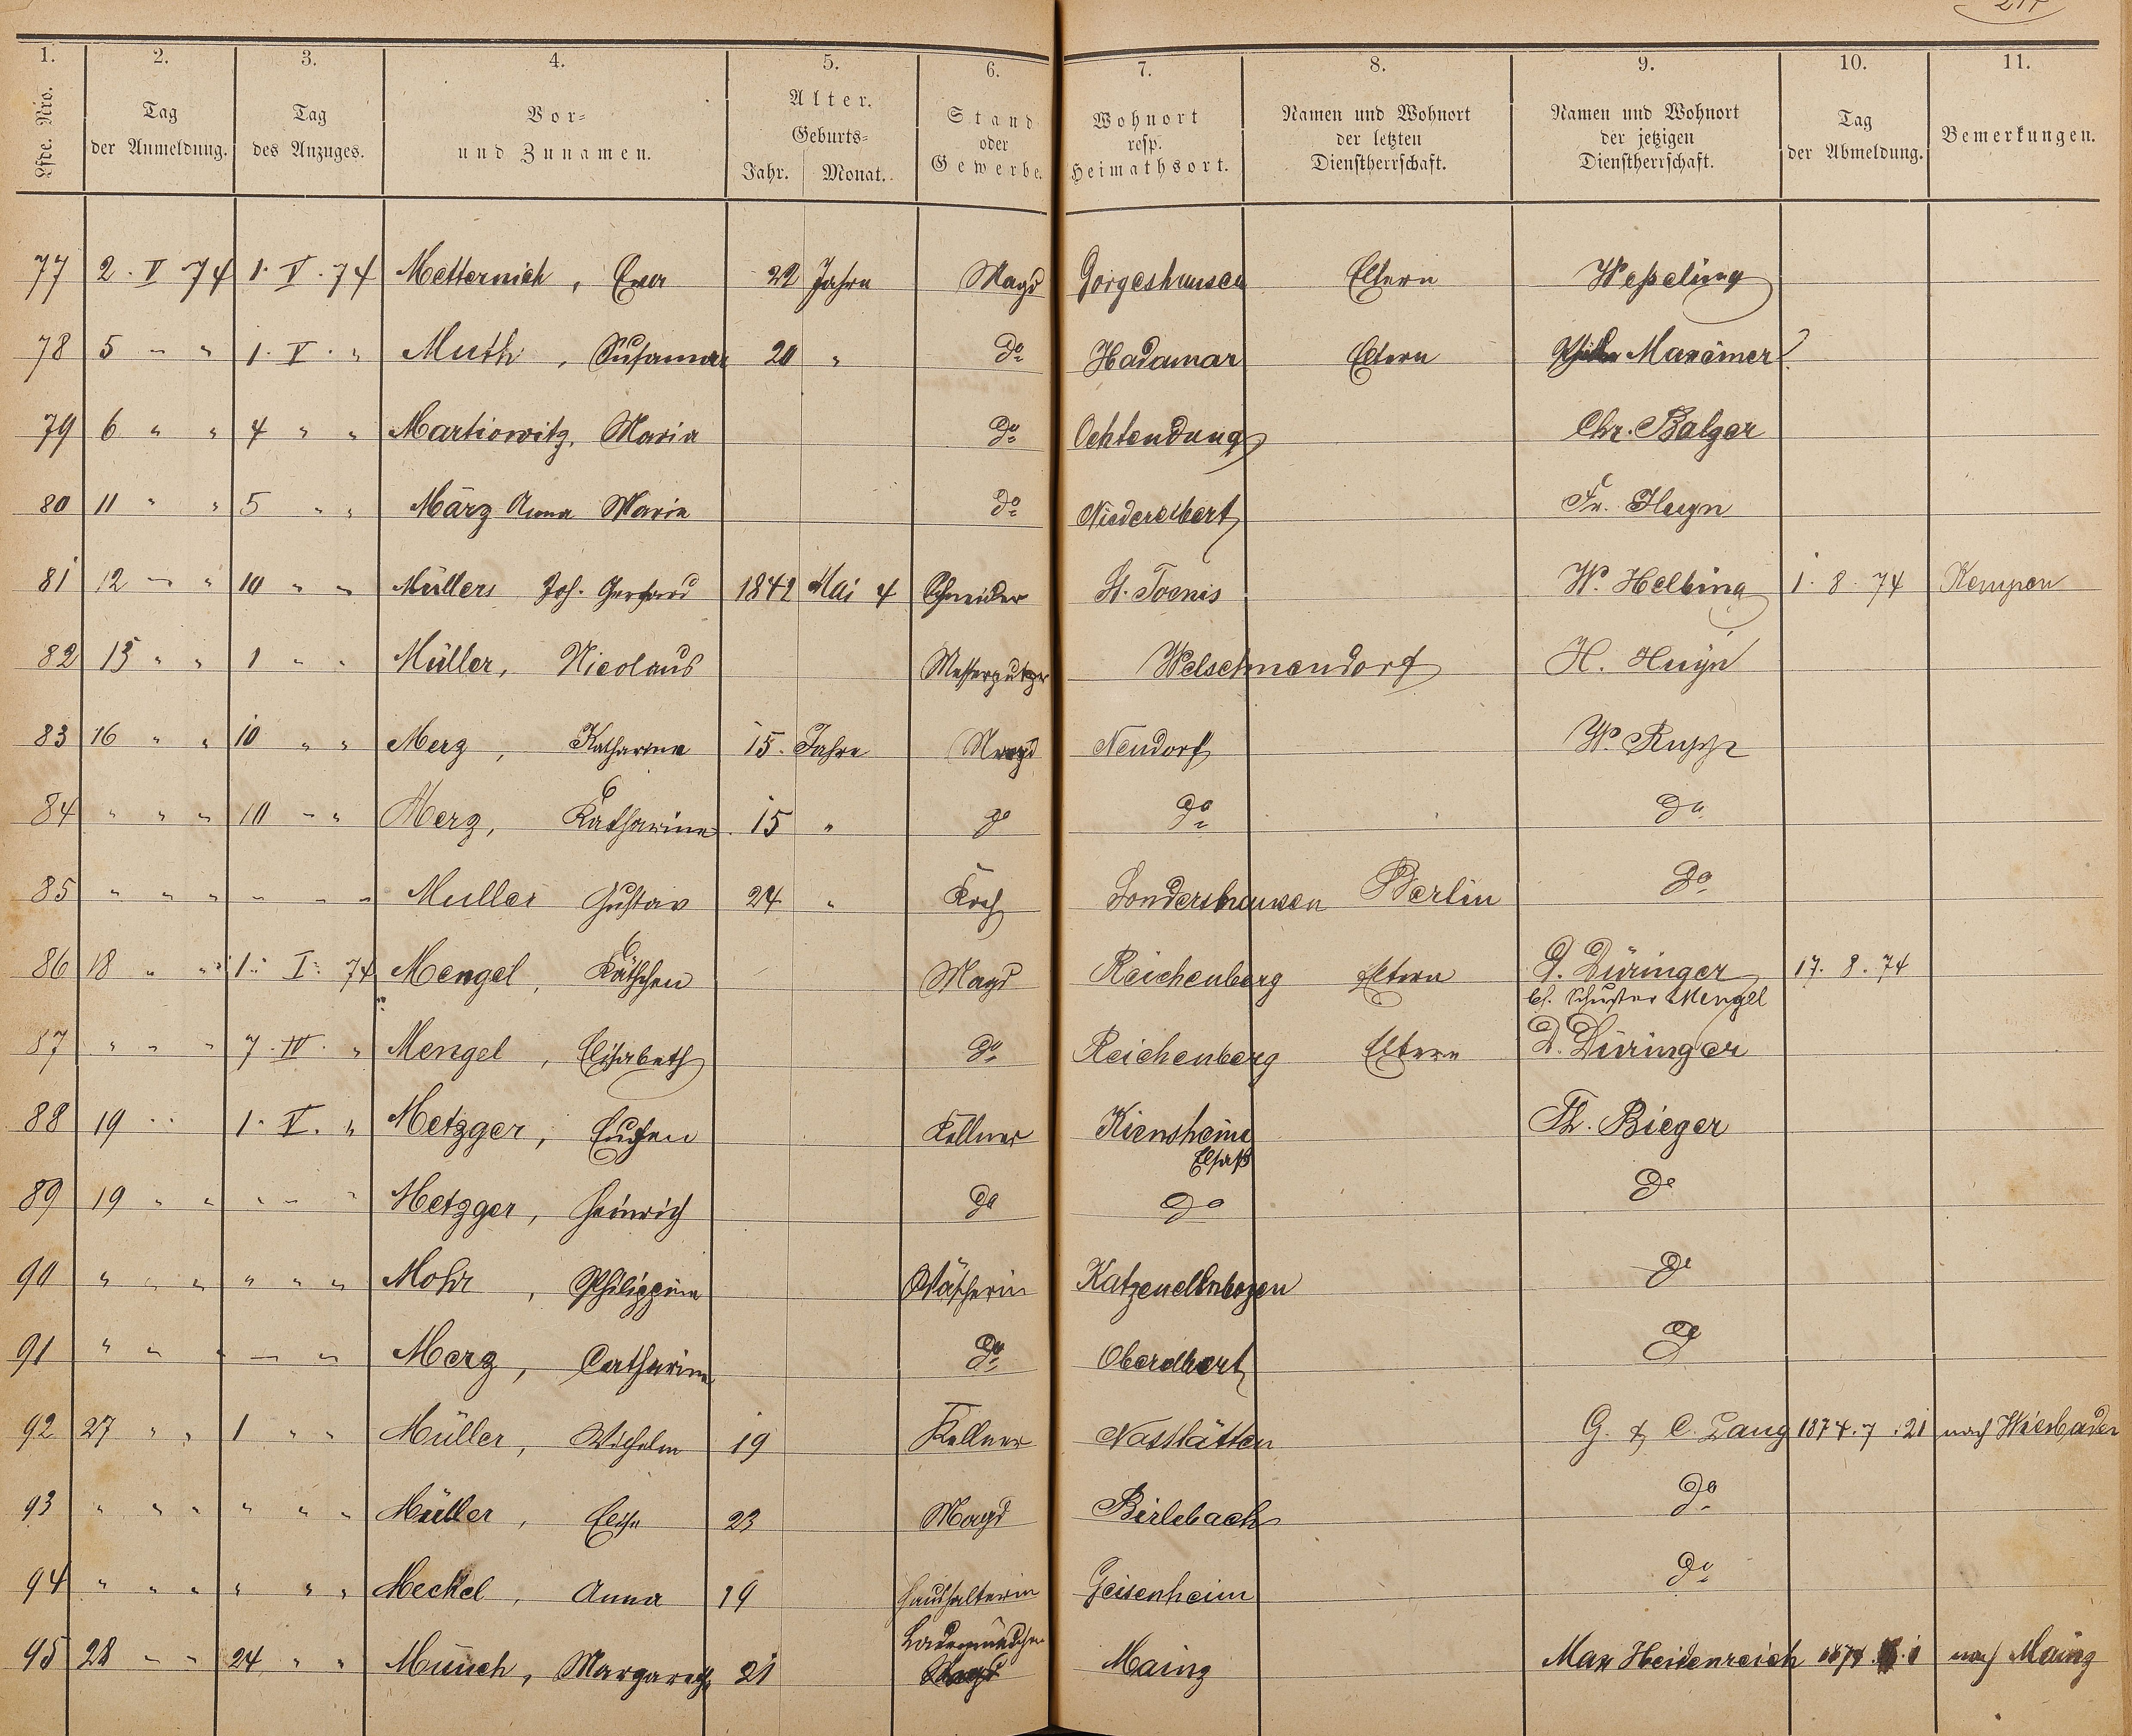 1. 2. 3. 4. 5. 6. 7. 8. 9. 10. 11.
Lfde. Nro. | Tag der Anmeldung. | Tag des Anzuges. | Vor- und Zunamen. | Alter. Geburts- Jahr. Monat. | Stand oder Gewerbe. | Wohnort resp. Heimathsort. | Namen und Wohnort der letzten Dienstherrschaft. | Namen und Wohnort der jetzigen Dienstherrschaft. | Tag der Abmeldung. | Bemerkungen.
77 2. V 74 1. V. 74 Metternich, Eva 22 Jahre Magd Görgeshausen Eltern Weßeling
78 5 " " 1. V. " Muth, Susanna 20 " do Hadamar Eltern Maxeiner
79 6 " " 4 " " Martiowitz, Maria do Ochtendung Chr. Balzer
80 11 " " 5 " " März Anna Maria do Niederelbert Fr. Huyn
81 12 " " 10 " " Müllers Joh. Gerhard 1842 Mai 4 Schneider St. Toenis W. Helbing 1. 8. 74 Kempen
82 15 " " 1 " " Müller, Nicolaus Messerputzer Welschneudorf H. Huyn
83 16 " " 10 " " Merz, Katharina 15. Jahre Magd Neudorf W. Rupp
84 " " " 10 " " Merz, Katharina 15 " do do do
85 " " " " " " Muller Gustav 24 " Koch Sondershausen Berlin do
86 18 " " 1. I. 74 Mengel, Käthchen Magd Reichenberg Eltern D. Düringer 17. 8. 74
bei Schuster Mengel
87 " " " 7. IV. " Mengel, Elisabeth do Reichenberg Eltern D. Düringer
88 19 " " 1. V. " Metzger, Eugen Kellner Kiensheim Th. Bieger
Elsaß
89 19 " " " " " Metzger, Heinrich do do do
90 " " " " " " Mohr, Philippine Wäscherin Katzenellnbogen do
91 " " " " " Merz, Catharina do Oberelbert do
92 27 " " 1 " " Müller, Wilhelm 19 Kellner Nastätten G. & C. Lang 1874. 7. 21 nach Wiesbaden
93 " " " " " " Müller, Elise 23 Magd Birlebach do
94 " " " " " " Meckel, Anna 19 Haushälterin Geisenheim do
95 28 " " 24 " " Münch, Margareth 21 Ladenmädchen Mainz Max Heidenreich nach Mainz